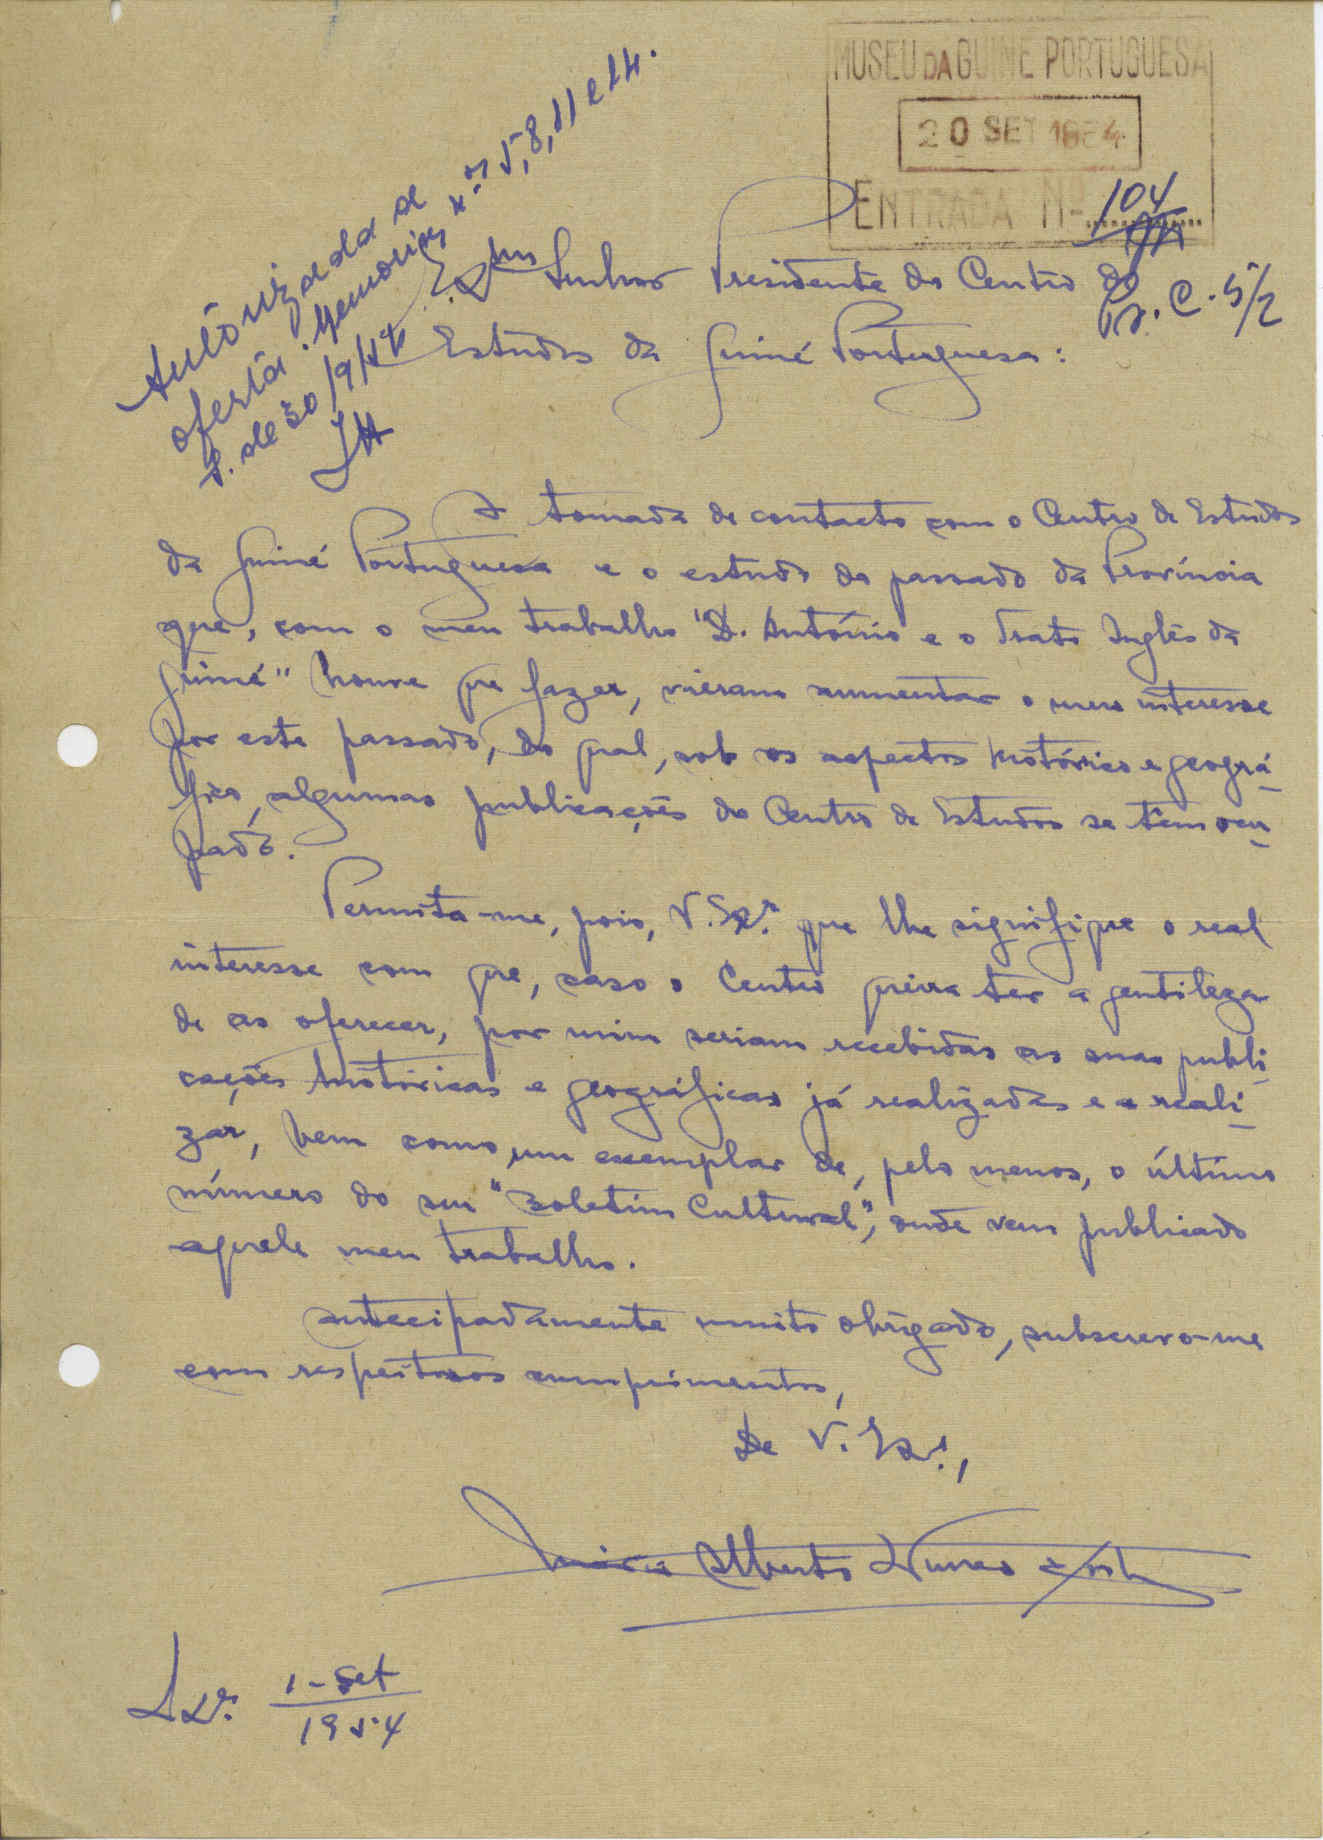 MUSEU DA GUINÉ PORTUGUESA
20 SET 1954
ENTRADA Nº 104
Pr. C. 5/2
Autorizada se
oferta. Memórias n.os 5, 8, 11 e 14.
B. de 30/9/54
Exmo Senhor Presidente do Centro de
Estudos da Guiné Portuguesa:
A tomada de contacto com o Centro de Estudos
da Guiné Portuguesa e o estudo do passado da Província
que, com o meu trabalho "D. António e o Trato Inglês da
Guiné" houve que fazer, vieram aumentar o meu interesse
por este passado, do qual, sob os aspectos histórico e geográ-
fico, algumas publicações do Centro de Estudos se têm ocu-
pado.
Permita-me, pois, V. Ex.ª que lhe signifique o real
interesse com que, caso o Centro queira ter a gentileza
de as oferecer, por mim seriam recebidas as suas publi-
cações históricas e geográficas já realizadas e a reali-
zar, bem como um exemplar de, pelo menos, o último
número do seu "Boletim Cultural", onde vem publicado
aquele meu trabalho.
Antecipadamente muito obrigado, subscrevo-me
com respeitosos cumprimentos,
De V. Ex.ª,
Mário Alberto Nunes Costa
Lx.ª 1-Set
1954